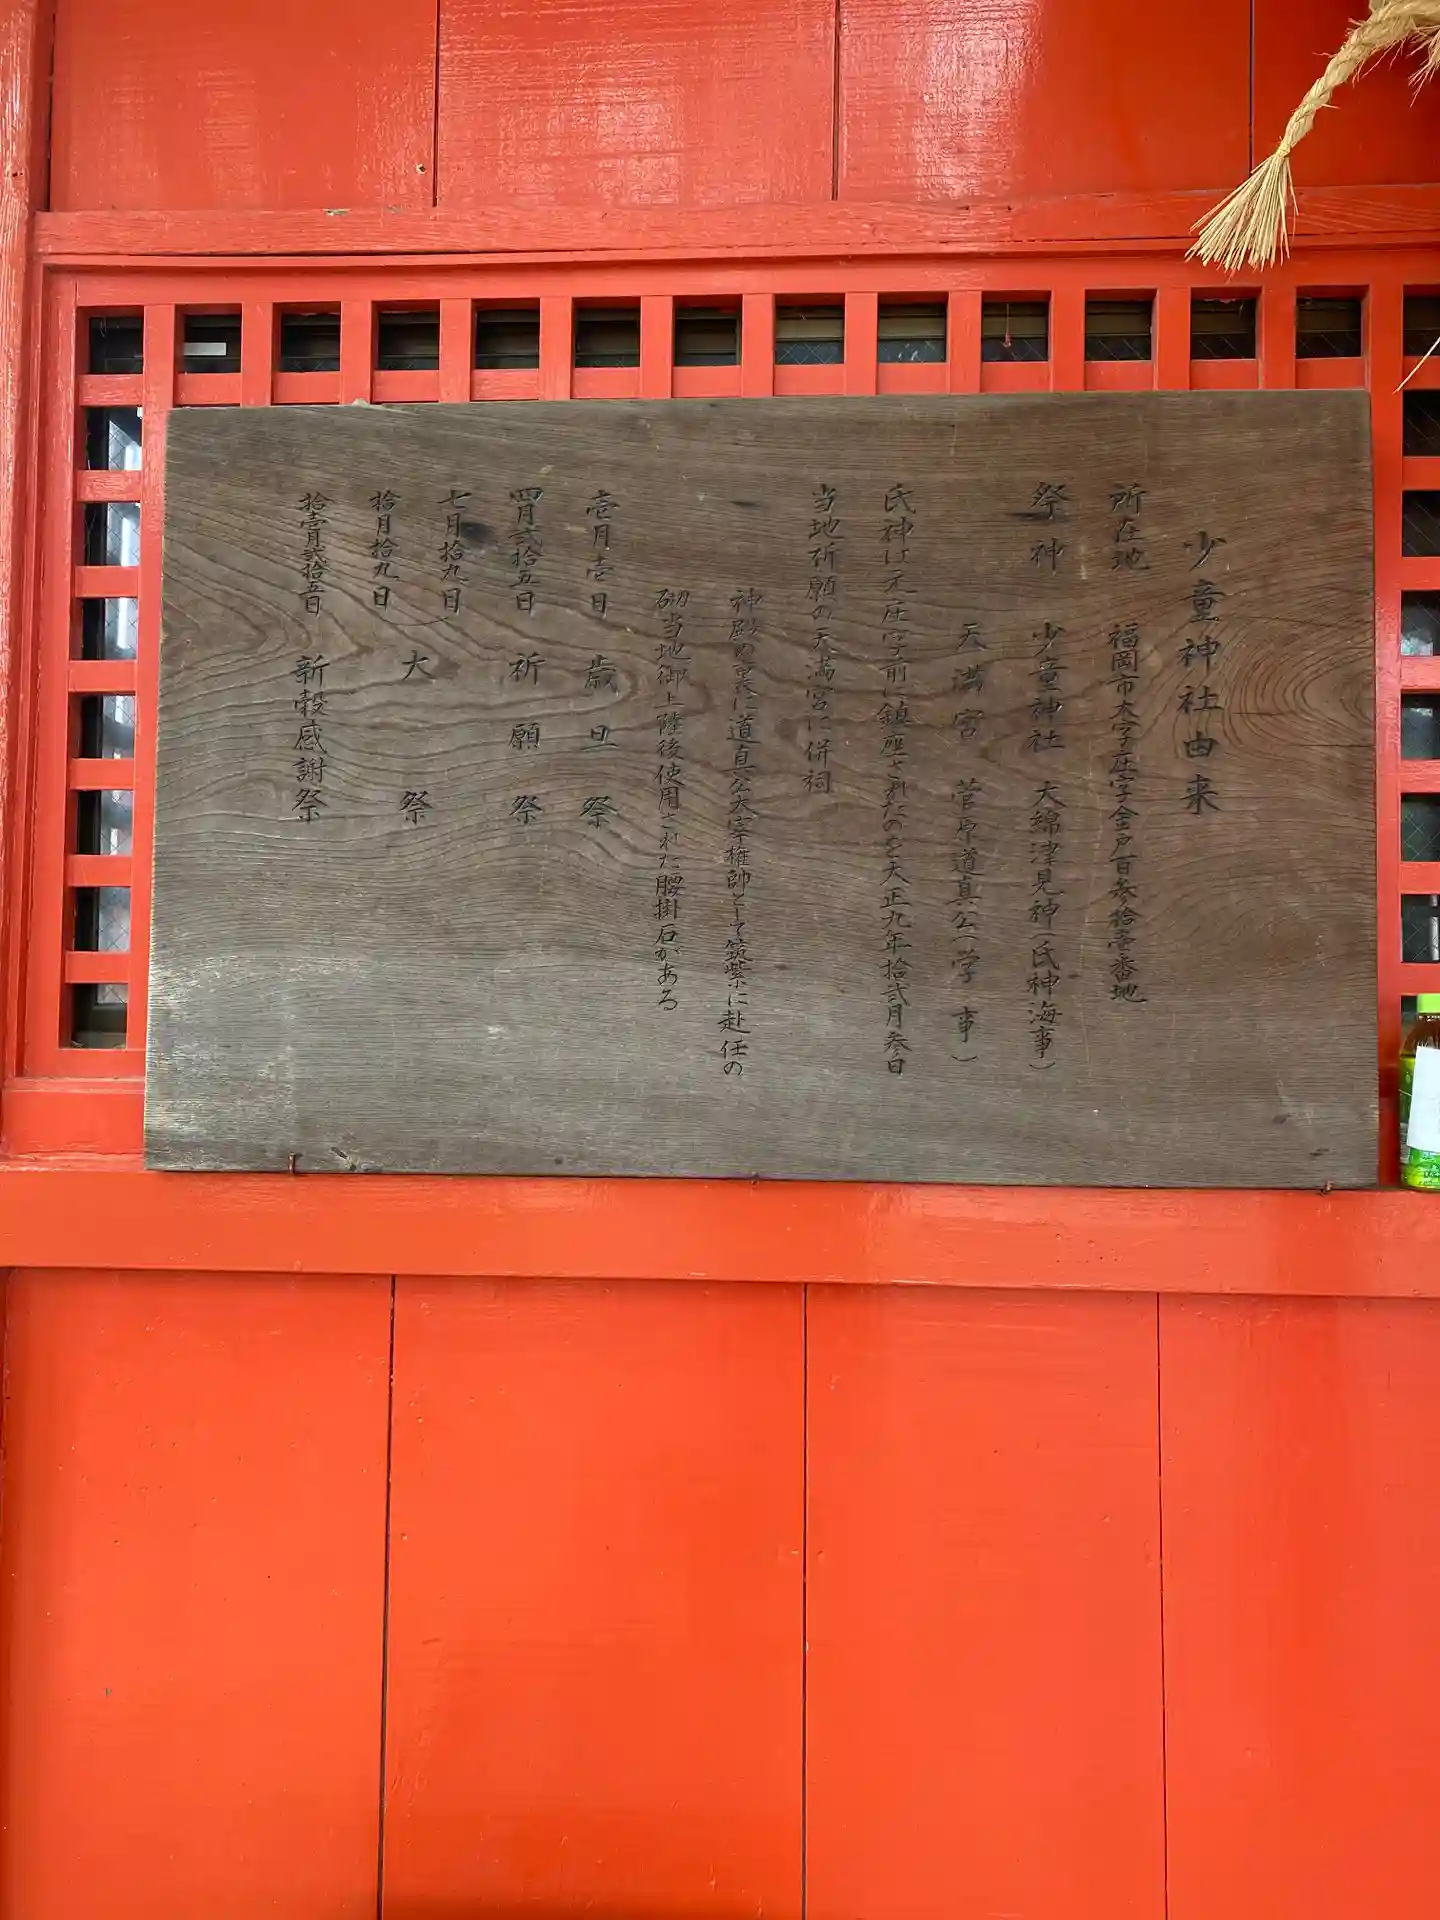 少童神社由来
所在地 福岡市大字庄字金戸百参拾壱番地
祭神 少童神社 大綿津見神(氏神海事)
天満宮 菅原道真公(学事)
氏神は元庄字前に鎮座されたのを大正九年拾弐月参日
当地祈願の天満宮に併祠
神殿の裏に道真公大宰権帥として筑紫に赴任の
砌当地御上陸後使用された腰掛石がある
壱月壱日 歳旦祭
四月弐拾五日 祈願祭
七月拾九日
拾月拾九日 大祭
拾壱月弐拾五日 新穀感謝祭